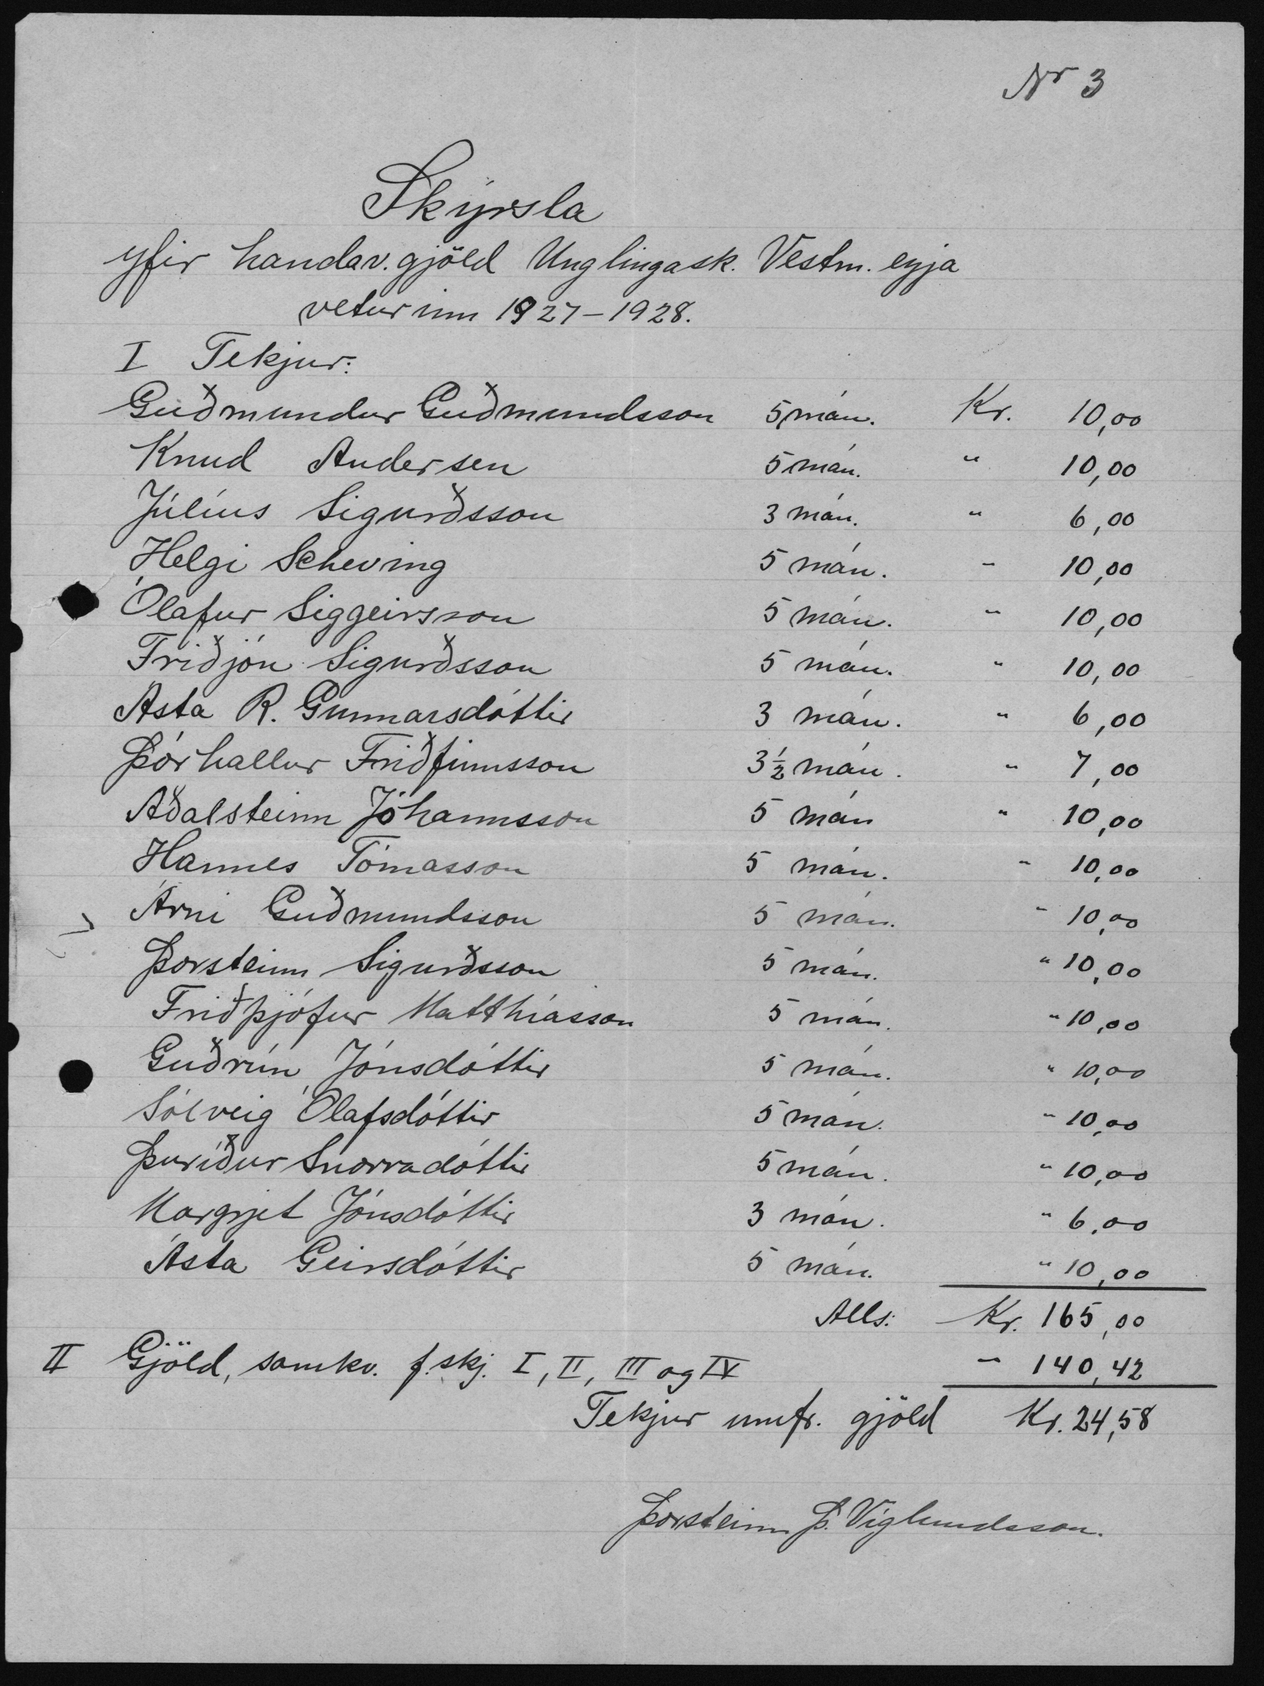 Nr 3
Skýrsla
yfir handav.gjöld Unglingask. Vestm. eyja
veturinn 1927-1928.
I Tekjur:
Guðmundur Guðmundsson 5 mán. Kr. 10,00
Knud Andersen 5 mán. " 10,00
Júlíus Sigurðsson 3 mán. " 6,00
Helgi Scheving 5 mán. " 10,00
Ólafur Siggeirsson 5 mán. " 10,00
Friðjón Sigurðsson 5 mán. " 10,00
Ásta R. Gunnarsdóttir 3 mán. " 6,00
Þórhallur Friðfinnsson 3½ mán. " 7,00
Aðalsteinn Jóhannsson 5 mán " 10,00
Hannes Tómasson 5 mán. " 10,00
Árni Guðmundsson 5 mán. " 10,00
Þorsteinn Sigurðsson 5 mán. " 10,00
Friðþjófur Matthíasson 5 mán. " 10,00
Guðrún Jónsdóttir 5 mán. " 10,00
Sólveig Ólafsdóttir 5 mán. " 10,00
Þuríður Snorradóttir 5 mán. " 10,00
Margrjet Jónsdóttir 3 mán. " 6,00
Ásta Geirsdóttir 5 mán. " 10,00
Alls: Kr. 165,00
II Gjöld, samkv. f.skj. I, II, III og IV " 140,42
Tekjur umfr. gjöld Kr. 24,58
Þorsteinn Þ. Víglundsson.